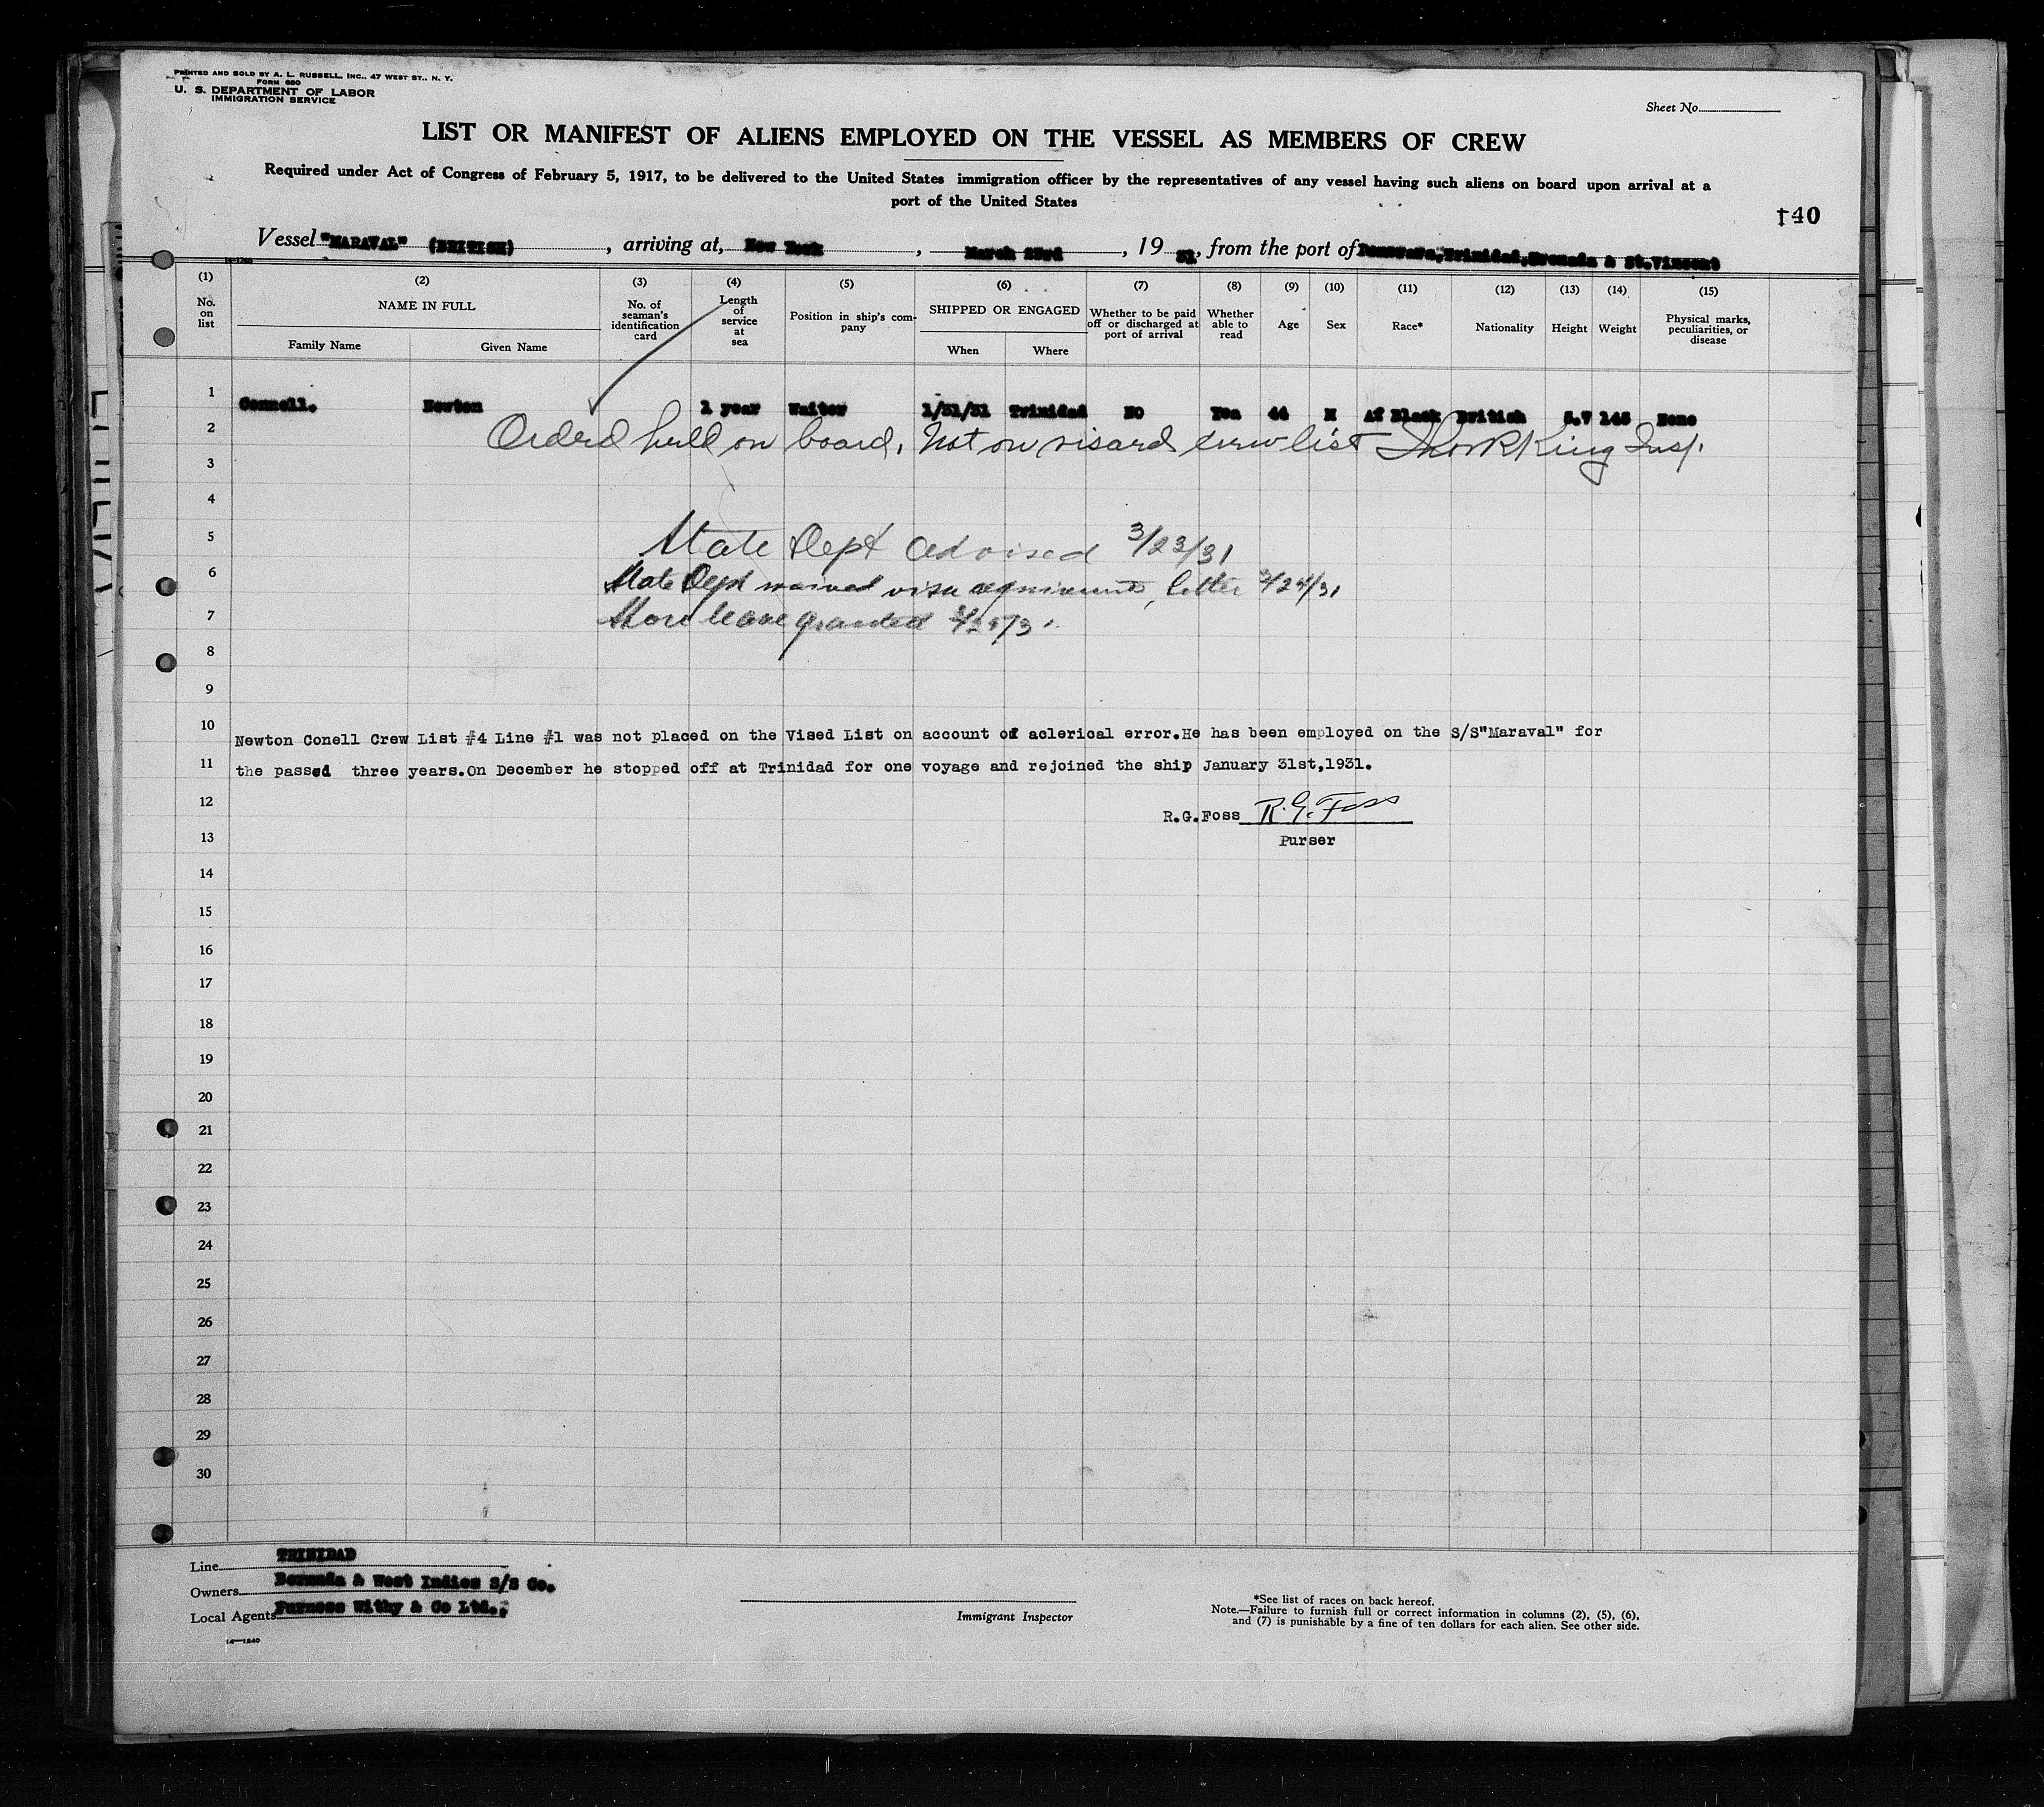 PRINTED AND SOLD BY A. L. RUSSELL, INC., 47 WEST ST., N. Y.
FORM 680
U. S. DEPARTMENT OF LABOR
IMMIGRATION SERVICE
Sheet No.
LIST OR MANIFEST OF ALIENS EMPLOYED ON THE VESSEL AS MEMBERS OF CREW
Required under Act of Congress of February 5, 1917, to be delivered to the United States immigration officer by the representatives of any vessel having such aliens on board upon arrival at a
port of the United States
†40
Vessel "MARAVAL" (BRITISH), arriving at, New York, March 23rd, 19 31, from the port of Demerara, Trinidad, Grenada & St.Vincent
14-1240
(1) (2) (3) (4) (5) (6) (7) (8) (9) (10) (11) (12) (13) (14) (15)
No. on list
NAME IN FULL
Family Name
Given Name
No. of seaman's identification card
Length of service at sea
Position in ship's company
SHIPPED OR ENGAGED
When
Where
Whether to be paid off or discharged at port of arrival
Whether able to read
Age
Sex
Race*
Nationality
Height
Weight
Physical marks, peculiarities, or disease
1 Connell. Newton 1 year Waiter 1/31/31 Trinidad NO Yes 44 M Af Black British 5.7 145 None
2 Ordered held on board, Not on visaed crew list King Insp.
3
4
5 State Dept advised 3/23/31
6 State Dept waived visa requirements, letter 3/24/31
7 Shore leave granted
8
9
10 Newton Conell Crew List #4 Line #1 was not placed on the Vised List on account of aclerical error.He has been employed on the S/S"Maraval" for
11 the passed three years.On December he stopped off at Trinidad for one voyage and rejoined the ship January 31st,1931.
12 R.G.Foss R.G.Foss
13 Purser
14
15
16
17
18
19
20
21
22
23
24
25
26
27
28
29
30
Line TRINIDAD
Owners Bermuda & West Indies S/S Co.
Local Agents Furness Withy & Co Ltd.,
14-1240
Immigrant Inspector
*See list of races on back hereof.
Note.—Failure to furnish full or correct information in columns (2), (5), (6),
and (7) is punishable by a fine of ten dollars for each alien. See other side.